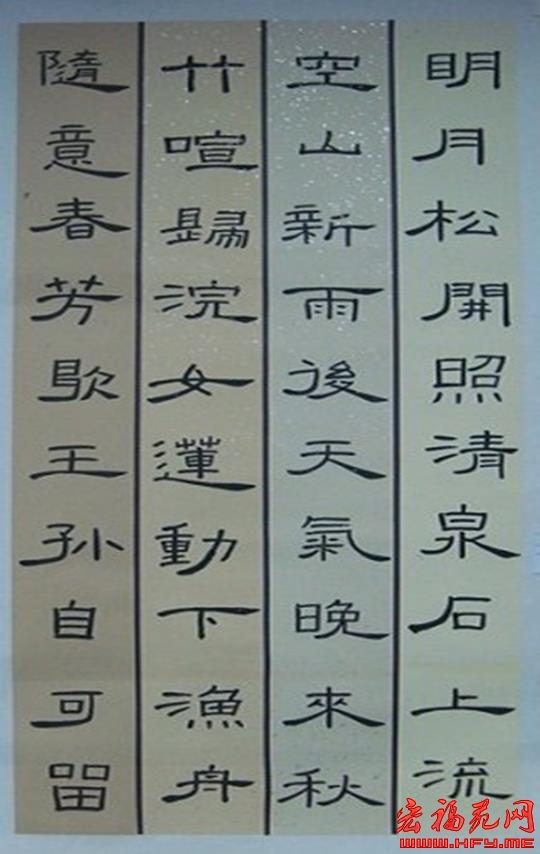 明月松開照清泉石上流
空山新雨後天氣晚來秋
竹喧歸浣女蓮動下漁舟
隨意春芳歇王孙自可留
宏福苑网
WWW.HFY.ME